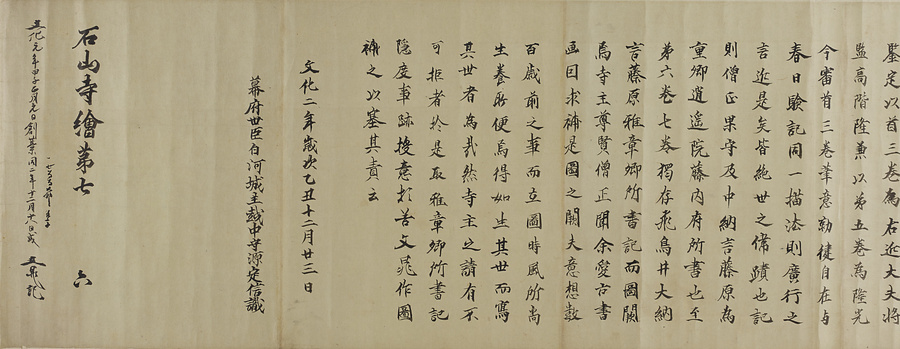 鑒定以首三卷為右近大夫將
監高階隆兼以第五卷為隆光
今審首三卷筆意勁健自在与
春日驗記同一描法則廣行之
言近是矣皆絕世之偉蹟也記
則僧正果守及中納言藤原為
重卿逍遙院藤內府所書也至
第六卷七卷獨存飛鳥井大納
言藤原雅章卿所書記而圖闕
焉寺主尊賢僧正聞余愛古書
画因求補是圖之闕夫意想數
百歲前之事而立圖時風所尚
生養所便焉得如生其世而寫
其世者為哉然寺主之請有不
可拒者於是取雅章卿所書記
隱度事跡授意於善文晁作圖
補之以塞其責云
文化二年歲次乙丑十二月廿三日
幕府世臣白河城主越中守源定信識
石山寺繪第七 六
文化元年甲子正月元日創業同二年十二月十八日成 文晁記